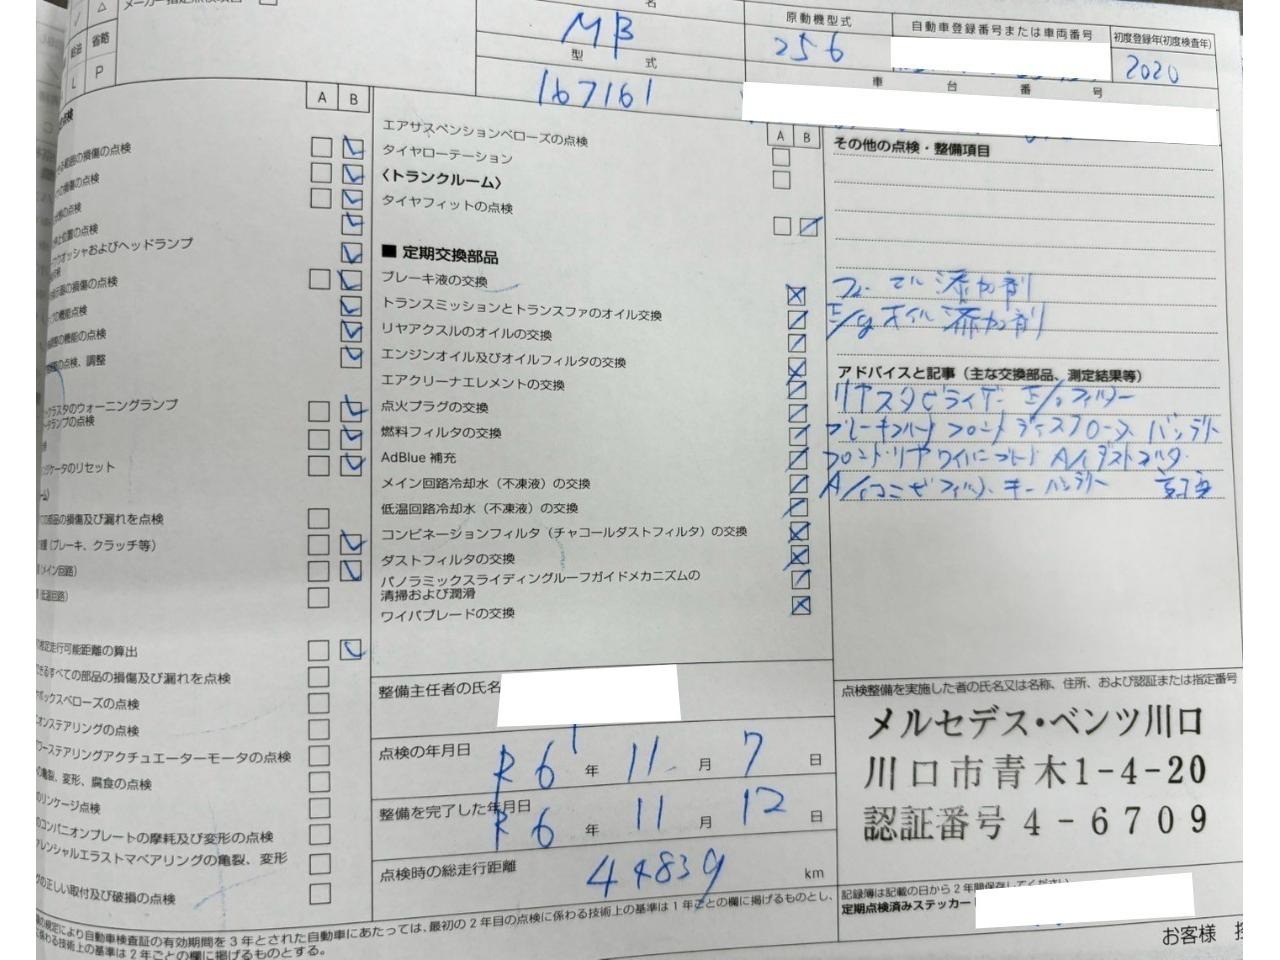 メーカー指定点検項目
△
省略
P
L
名
MB
型 式
167161
原動機型式
256
自動車登録番号または車両番号
初度登録年(初度検査年)
2020
車 台 番 号
A B
点検
損傷の点検
損傷の点検
の点検
位置の点検
ウオッシャおよびヘッドランプ
の損傷の点検
の機能点検
の機能の点検
の点検、調整
クラスタのウォーニングランプ
ランプの点検
ケータのリセット
の部品の損傷及び漏れを点検
(ブレーキ、クラッチ等)
メイン回路)
低温回路)
走行可能距離の算出
すべての部品の損傷及び漏れを点検
ボックスベローズの点検
ステアリングの点検
パワーステアリングアクチュエーターモータの点検
亀裂、変形、腐食の点検
リンケージ点検
コンパニオンプレートの摩耗及び変形の点検
レンシャルエラストマベアリングの亀裂、変形
の正しい取付及び破損の点検
A B
エアサスペンションベローズの点検
タイヤローテーション
〈トランクルーム〉
タイヤフィットの点検
■ 定期交換部品
ブレーキ液の交換
トランスミッションとトランスファのオイル交換
リヤアクスルのオイルの交換
エンジンオイル及びオイルフィルタの交換
エアクリーナエレメントの交換
点火プラグの交換
燃料フィルタの交換
AdBlue 補充
メイン回路冷却水(不凍液)の交換
低温回路冷却水(不凍液)の交換
コンビネーションフィルタ(チャコールダストフィルタ)の交換
ダストフィルタの交換
パノラミックスライディングルーフガイドメカニズムの
清掃および潤滑
ワイパブレードの交換
整備主任者の氏名
点検の年月日
R 6 年 11 月 7 日
整備を完了した年月日
R 6 年 11 月 12 日
点検時の総走行距離
44839 km
その他の点検・整備項目
フューエル 添加剤
E/gオイル 添加剤
アドバイスと記事(主な交換部品、測定結果等)
リヤスタビライザー E/gフィルター
ブレーキフルード フロント ディスク バッテリー
フロント・リヤ ワイパーブレード A/Cダストフィルター
A/Cコンビフィルター キーバッテリー
点検整備を実施した者の氏名又は名称、住所、および認証または指定番号
メルセデス・ベンツ川口
川口市青木1-4-20
認証番号 4-6709
記録簿は記載の日から2年間保存してください
定期点検済みステッカー
お客様
の規定により自動車検査証の有効期間を3年とされた自動車にあたっては、最初の2年目の点検に係わる技術上の基準は1年ごとの欄に掲げるものとし、
に係わる技術上の基準は2年ごとの欄に掲げるものとする。